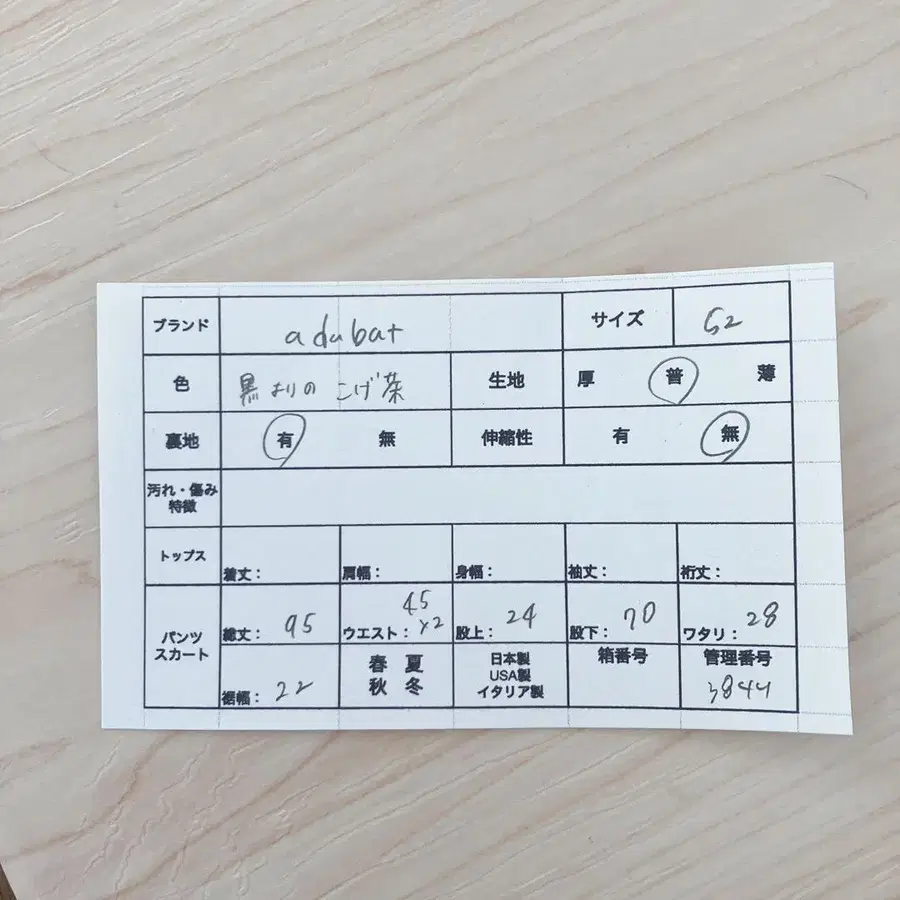 ブランド adabat サイズ 52
色 黒よりのこげ茶 生地 厚 普 薄
裏地 有 無 伸縮性 有 無
汚れ・傷み
特徴
トップス 着丈: 肩幅: 身幅: 袖丈: 裄丈:
パンツ
スカート
総丈: 95 ウエスト: 45 ×2 股上: 24 股下: 70 ワタリ: 28
裾幅: 22
春 夏
秋 冬
日本製
USA製
イタリア製
箱番号
管理番号
3844